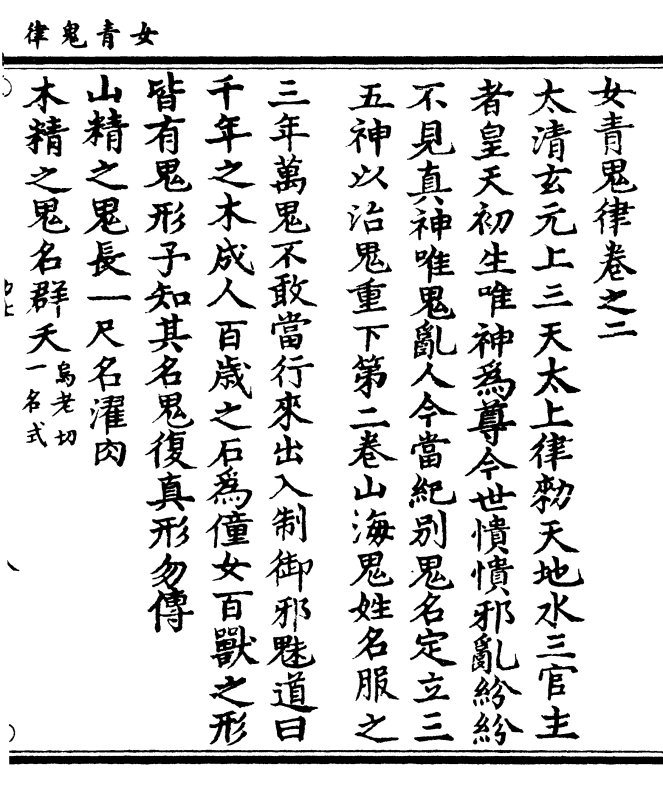 女青鬼律
女青鬼律卷之二
太清玄元上三天太上律勑天地水三官主
者皇天初生唯神為尊今世憒憒邪亂紛紛
不見真神唯鬼亂人今當紀别鬼名定立三
五神以治鬼重下第二卷山海鬼姓名服之
三年萬鬼不敢當行來出入制御邪魅道曰
千年之木成人百歲之石為僮女百獸之形
皆有鬼形子知其名鬼復真形勿傳
山精之鬼長一尺名濯肉
木精之鬼名群夭烏老切一名式